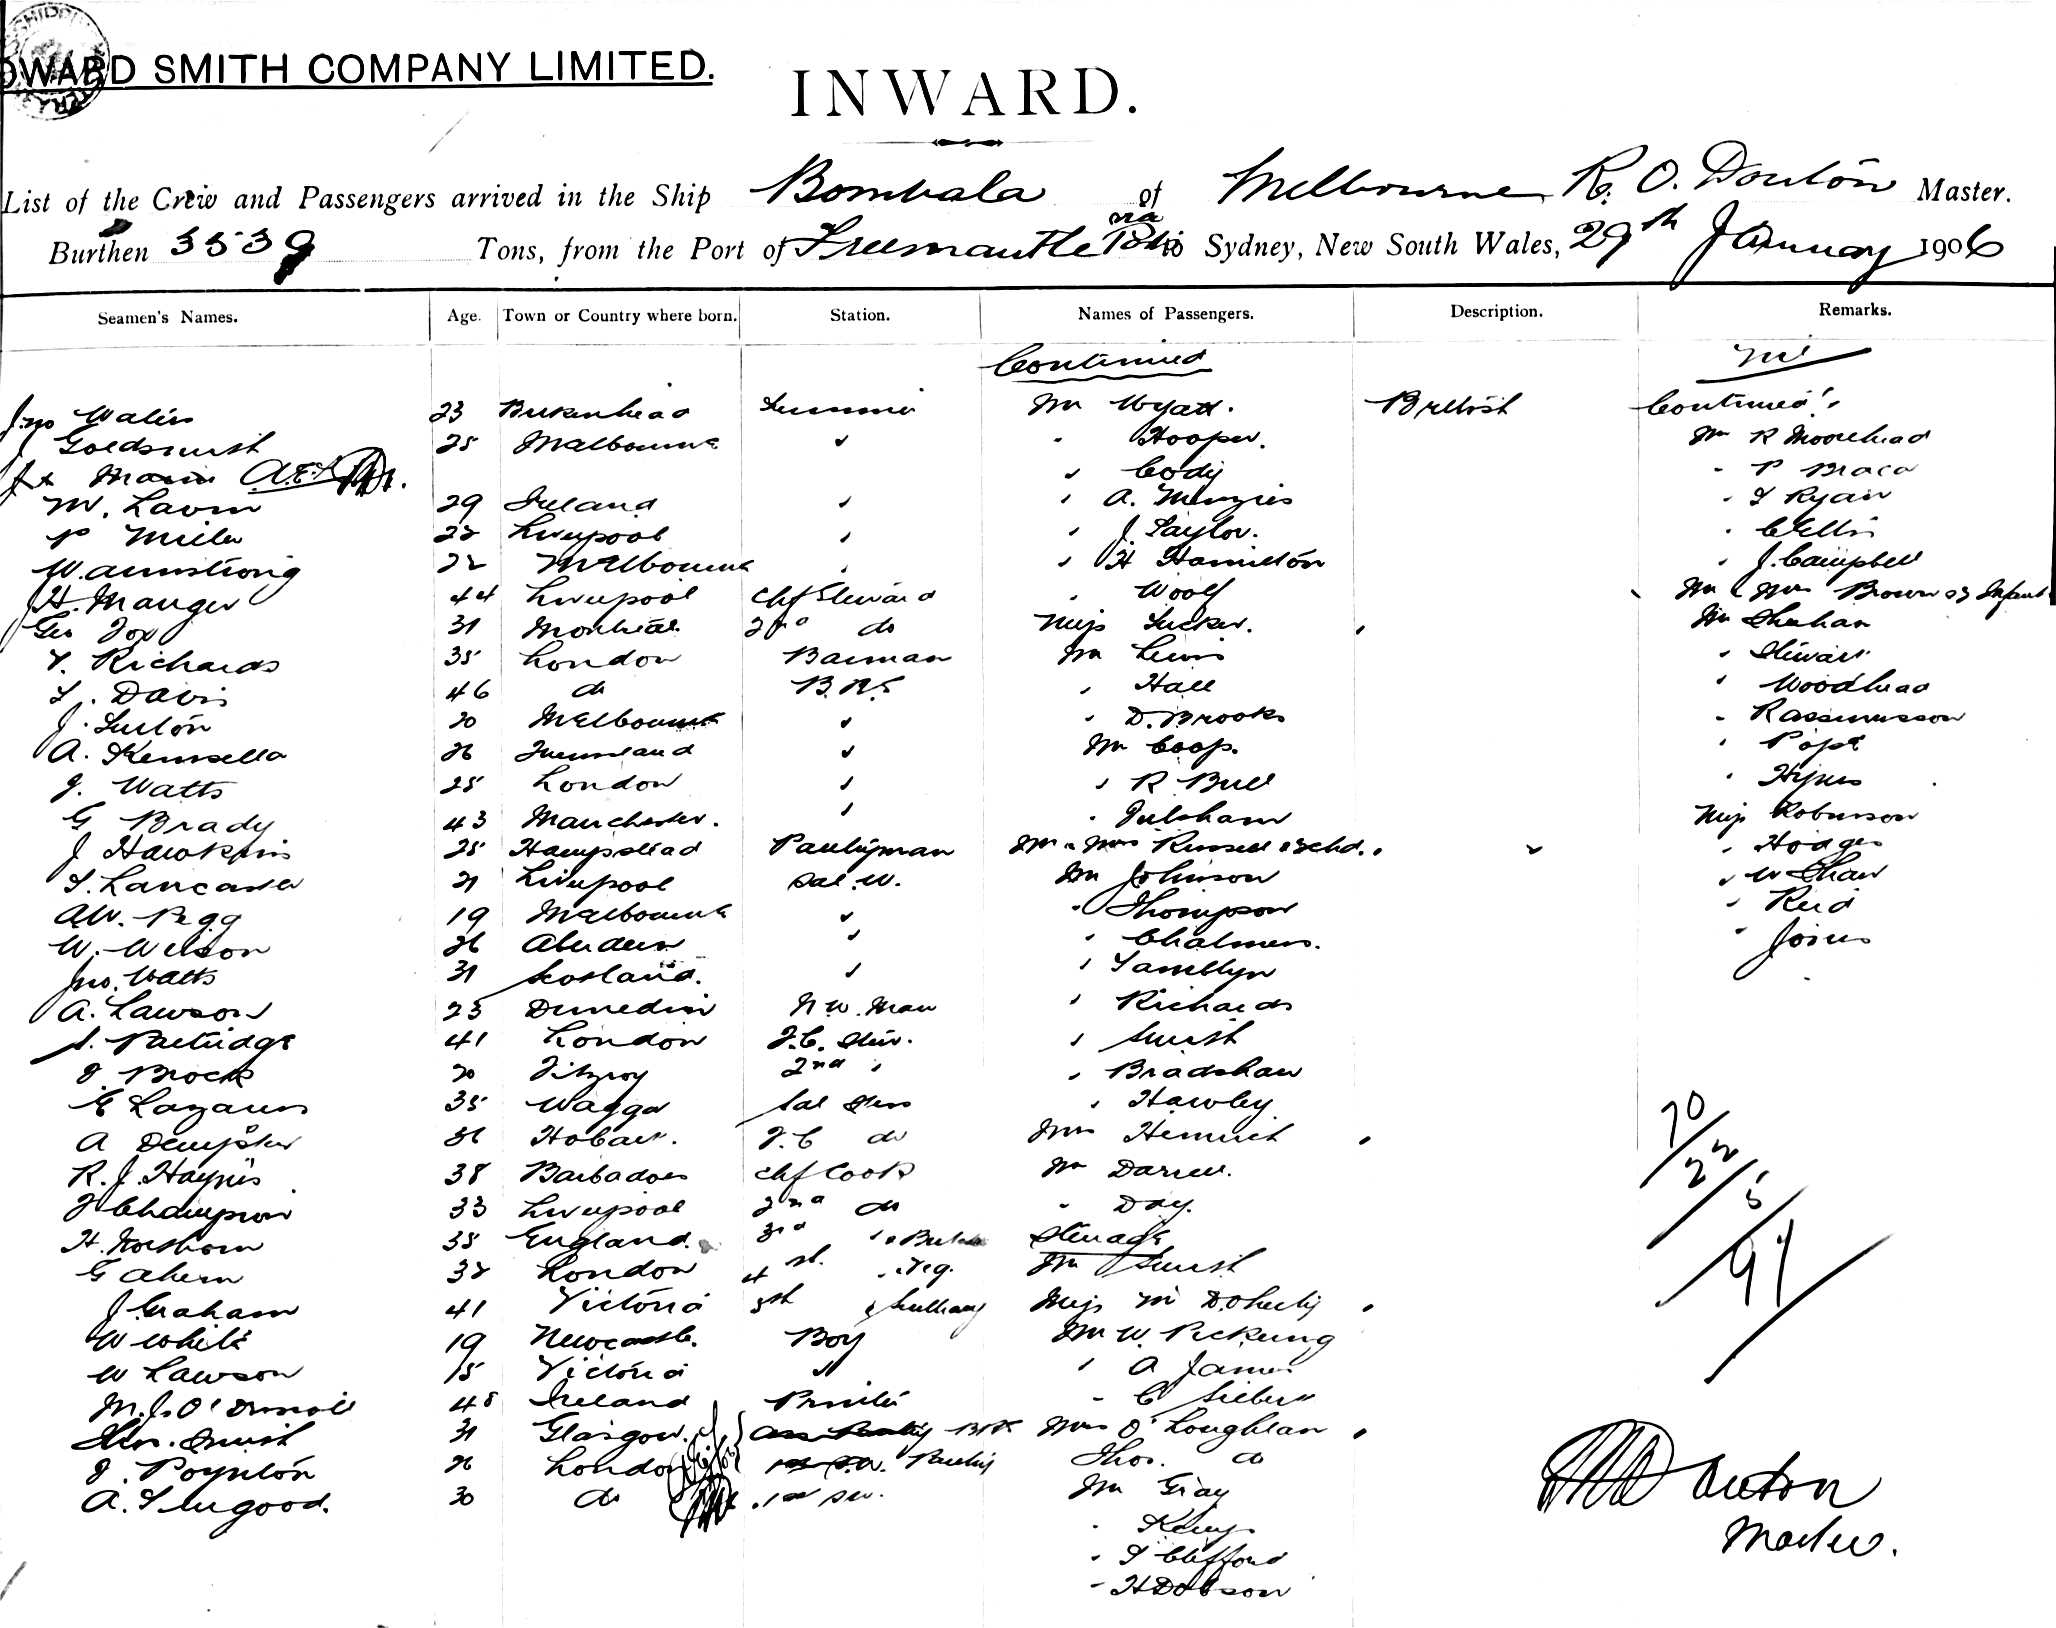 OWARD SMITH COMPANY LIMITED.
INWARD.
List of the Crew and Passengers arrived in the Ship Bombala of Melbourne R. O. Douton Master.
Burthen 3539 Tons, from the Port of Freemantle via Pts to Sydney, New South Wales, 29th January 1906
Seamen's Names. Age. Town or Country where born. Station. Names of Passengers. Description. Remarks.
Continued nil
Jno 23 Birkenhead Trimmer Mr Wyatt. British Continued
J Goldsmith 25 Melbourne " " Hooper. Mr R Moorehead
Jas Mason A.E.S. " Cody " P Braca
M. Lavin 29 Ireland " " A. Menzies " T Ryan
P Miller 22 Liverpool " " J. Taylor. " C Ellis
W. Armstrong 22 Melbourne " " H Hamilton " J. Campbell
H. Manger 44 Liverpool Chf Steward " Woolf Mr & Mrs Brown & Infant
Geo Fox 31 Montreal 2nd do Miss Tucker. " Mr Shehan
T. Richards 35 London Barman Mr Lewis " Stewart
L. Davis 46 do B.R.S. " Hall " Woodhead
J. Luton 20 Melbourne " " D. Brooks " Rassmusson
A. Kensella 26 Queensland " Mr Coop. " Pope
J. Watts 25 London " " R Bull " Hynes
G Brady 43 Manchester. " " Fulsham Miss Robinson
J Hawkins 25 Hampstead Pantryman Mr & Mrs Russell & 3 chd. " " Hodges
T. Lancaster 21 Liverpool Sal. W. Mr Johnson " W Shaw
A.W. Pegg 19 Melbourne " " Thompson " Reid
W. Wilson 26 Aberdeen " " Chalmers. " Joines
Jno. Watts 31 Scotland. " " Tamblyn
A. Lawson 23 Dunedin N.W. Man " Richards
S. Partridge 41 London F.C. Stew. " Smith
J Brock 20 Fitzroy 2nd " " Bradshaw
E Lazarus 35 Wagga Sal Stess " Hawley
A Dempster 36 Hobart. F.C do Mrs Heinrich "
R. J. Haynes 38 Barbadoes Chf Cook Mr Darrell.
J Champion 33 Liverpool 2nd do " Day.
H. Northorn 35 England. 3rd " & Butcher Steerage
G Ahern 32 London 4th " Veg. Mr Smith
J Graham 41 Victoria 5th " Scullery Miss M Doherty "
W White 19 Newcastle. Boy Mr W. Pickering
W Lawson 15 Victoria " " A James
M. J. O' 48 Ireland Printer " C Siebert
Thos. Smith 31 Glasgow. Mrs O'Loughlan "
J. Poynton 26 London Thos. do
A. 30 do Mr Gray
" Kemp
" T Clifford
" H Dobson
70/22/5/97
Douton
Master.